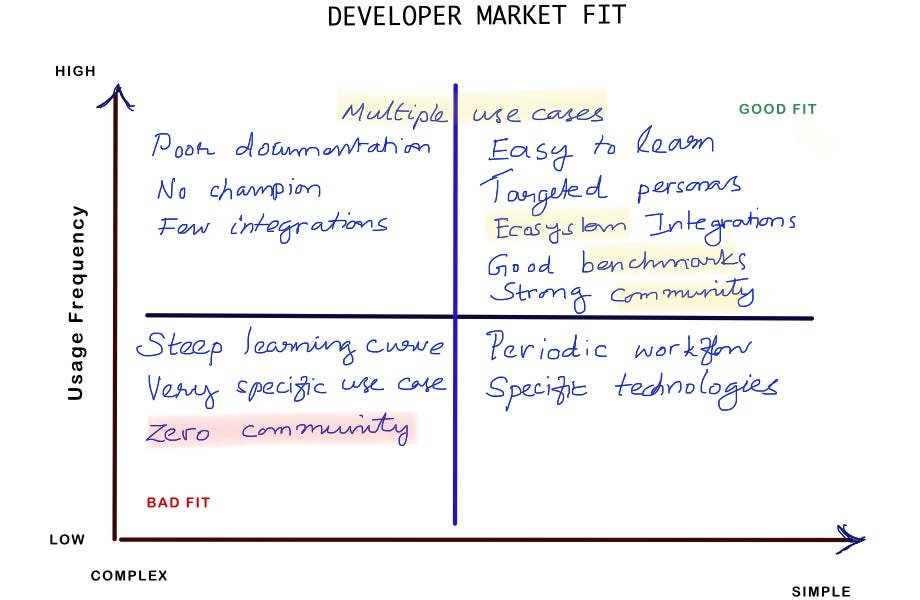 DEVELOPER MARKET FIT
HIGH
Multiple use cases
GOOD FIT
Poor documentation
No champion
Few integrations
Easy to learn
Targeted personas
Ecosystem Integrations
Good benchmarks
Strong community
Usage Frequency
Steep learning curve
Very specific use case
Zero community
Periodic workflow
Specific technologies
BAD FIT
LOW
COMPLEX
SIMPLE